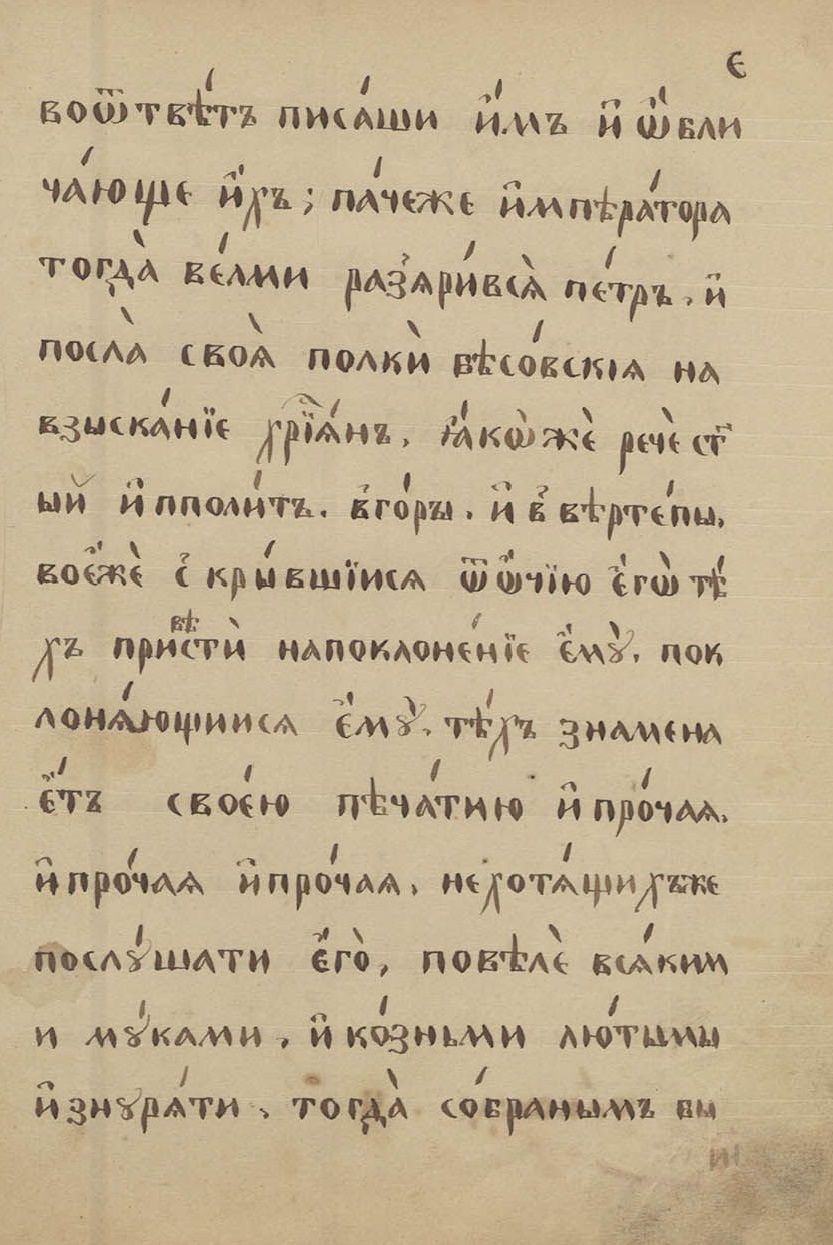 є
воѿвѣ́тъ писа́ши и҆́мъ и҆ ѡ҆бли
ча́юще и҆́хъ; па́чеже и҆мпѣра́тора
тогда̀ ве́лми раз̾ѧри́всѧ̀ пе́тръ, и҆
посла̀ своѧ̀ полкѝ бѣсо́вскіѧ на
взыска́нїе хрⷭ҇їѧ́нъ, ꙗ҆́кѡ̀жѐ речѐ ст҃
ый и҆пполи́тъ. в̾го́ры, и҆ в̾ вѣрте́пы,
воє҆́жѐ с̾кры́вшїисѧ ѿ ѻ҆́чїю є҆гѡ̀ тѣ́
хъ привѣстѝ напоклоне́нїе є҆мꙋ̀, пок
лонѧ́ющиисѧ є҆мꙋ̀, тѣ́хъ знамена
є҆́тъ свое́ю пѣча́тию и҆ про́чаѧ,
и҆ про́чаѧ и҆ про́чаѧ, нехотѧ́щихъже
послꙋ́шати є҆го̀, повѣлѐ всѧ́ким
и мꙋ́ками, и҆ ко́зньми лю́тымы
и҆знꙋрѧ́ти, тогда̀ со́бранымъ вы